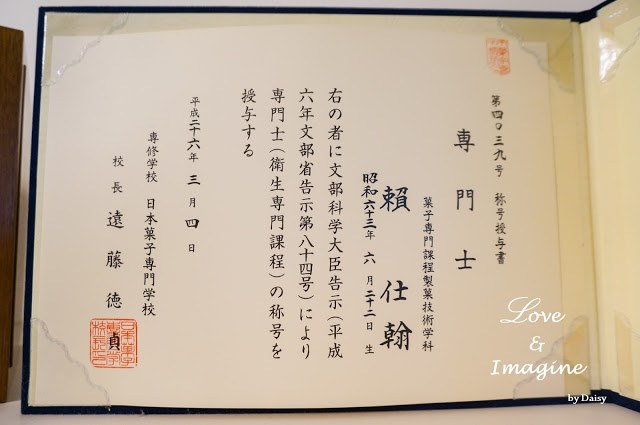 第四〇三九号　称号授与書
専門士
菓子専門課程製菓技術学科
賴仕翰
昭和六十三年六月二十二日生
右の者に文部科学大臣告示（平成
六年文部省告示第八十四号）により
専門士（衛生専門課程）の称号を
授与する
平成二十六年三月四日
専修学校　日本菓子専門学校
校長　遠藤徳貞
Love
&
Imagine
by Daisy